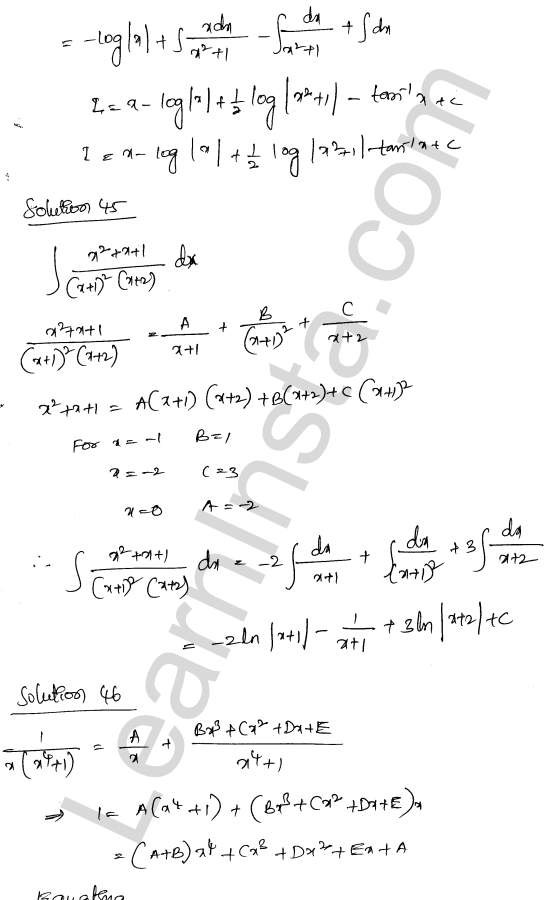 = -log|x| + ∫ xdx/(x²+1) - ∫ dx/(x²+1) + ∫ dx
I = x - log|x| + 1/2 log|x²+1| - tan⁻¹x + C
I = x - log|x| + 1/2 log|x²+1| - tan⁻¹x + C
Solution 45
∫ (x²+x+1)/((x+1)²(x+2)) dx
(x²+x+1)/((x+1)²(x+2)) = A/(x+1) + B/(x+1)² + C/(x+2)
x²+x+1 = A(x+1)(x+2) + B(x+2) + C(x+1)²
For x = -1 B = 1
x = -2 C = 3
x = 0 A = -2
∴ ∫ (x²+x+1)/((x+1)²(x+2)) dx = -2∫ dx/(x+1) + ∫ dx/(x+1)² + 3∫ dx/(x+2)
= -2ln|x+1| - 1/(x+1) + 3ln|x+2| + C
Solution 46
1/(x(x⁴+1)) = A/x + (Bx³+Cx²+Dx+E)/(x⁴+1)
⇒ 1 = A(x⁴+1) + (Bx³+Cx²+Dx+E)x
= (A+B)x⁴ + Cx³ + Dx² + Ex + A
Equating
LearnInsta.com